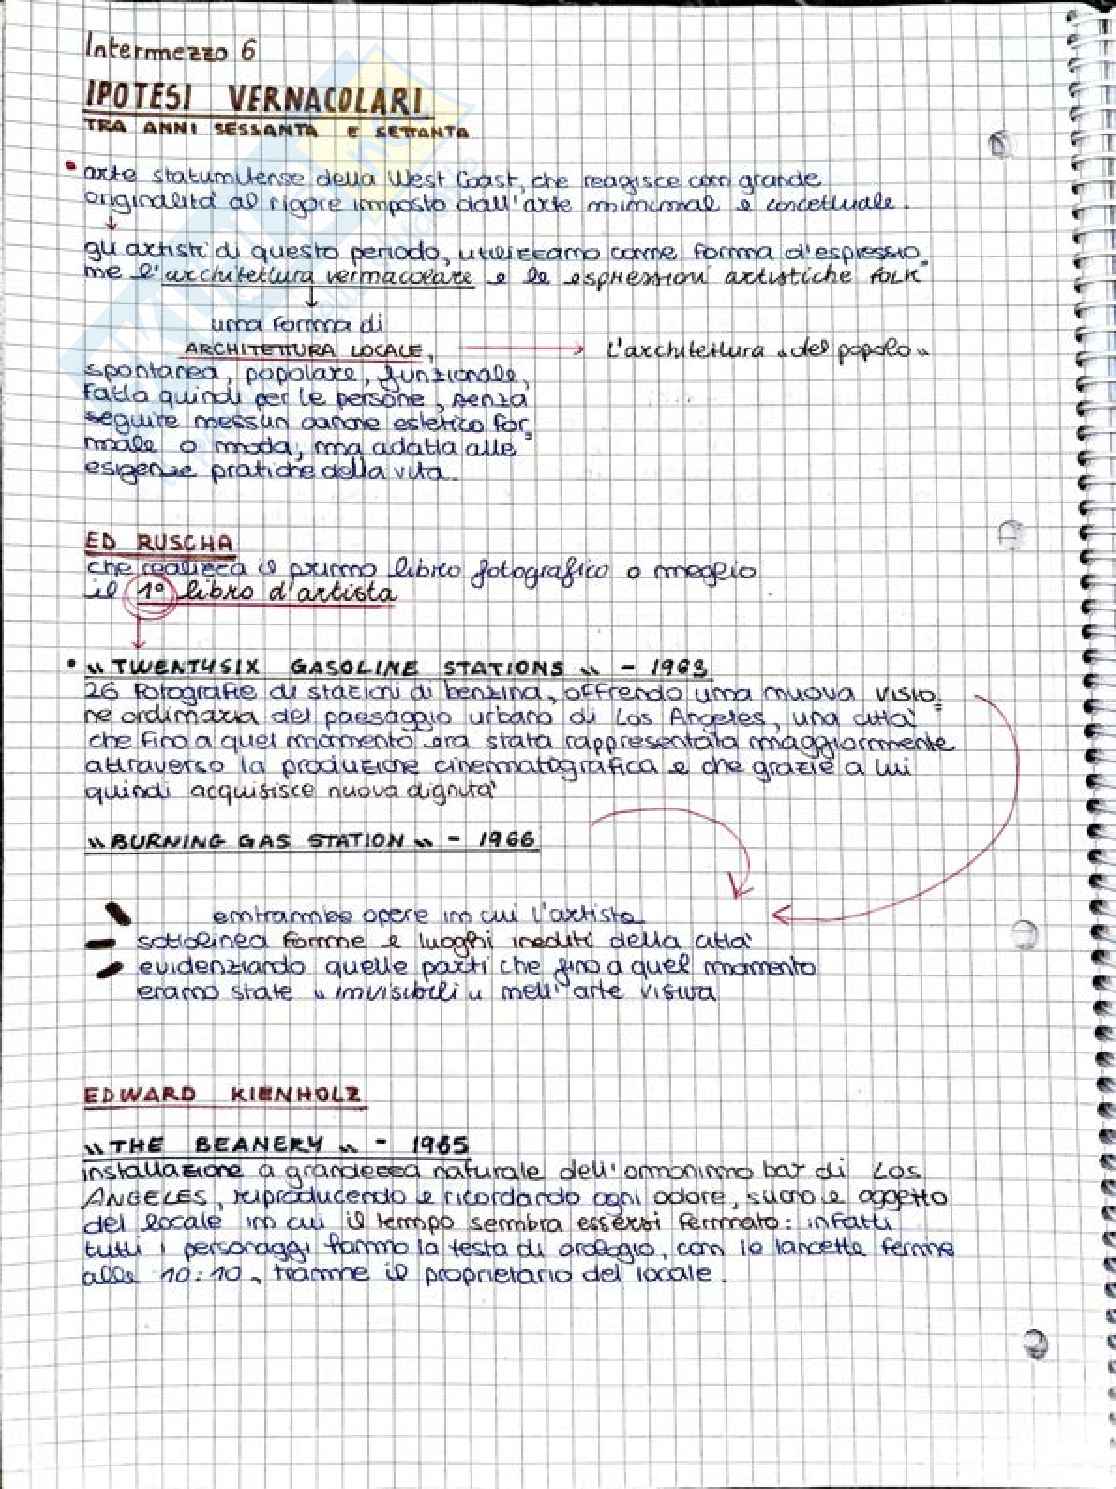 Intermezzo 6
IPOTESI VERNACOLARI
TRA ANNI SESSANTA E SETTANTA
• arte statunitense della West Coast, che reagisce con grande
originalità al rigore imposto dall'arte minimal e concettuale.
gli artisti di questo periodo, utilizzano come forma d'espressio
ne l'architettura vernacolare e le espressioni artistiche folk
una forma di
ARCHITETTURA LOCALE, → L'architettura "del popolo"
spontanea, popolare, funzionale,
fatta quindi per le persone, senza
seguire nessun canone estetico for
male o moda, ma adatta alle
esigenze pratiche della vita.
ED RUSCHA
che realizza il primo libro fotografico o meglio
il 1° libro d'artista
• "TWENTYSIX GASOLINE STATIONS" - 1963
26 fotografie di stazioni di benzina, offrendo una nuova visio
ne ordinaria del paesaggio urbano di Los Angeles, una città
che fino a quel momento era stata rappresentata maggiormente
attraverso la produzione cinematografica e che grazie a lui
quindi acquisisce nuova dignità
"BURNING GAS STATION" - 1966
entrambe opere in cui l'artista
sottolinea forme e luoghi inediti della città
evidenziando quelle parti che fino a quel momento
erano state "invisibili" nell'arte visiva
EDWARD KIENHOLZ
"THE BEANERY" - 1965
installazione a grandezza naturale dell'omonimo bar di Los
ANGELES, riproducendo e ricordando ogni odore, suono e oggetto
del locale in cui il tempo sembra essersi fermato: infatti
tutti i personaggi hanno la testa di orologio, con le lancette ferme
alle 10:10, tranne il proprietario del locale.